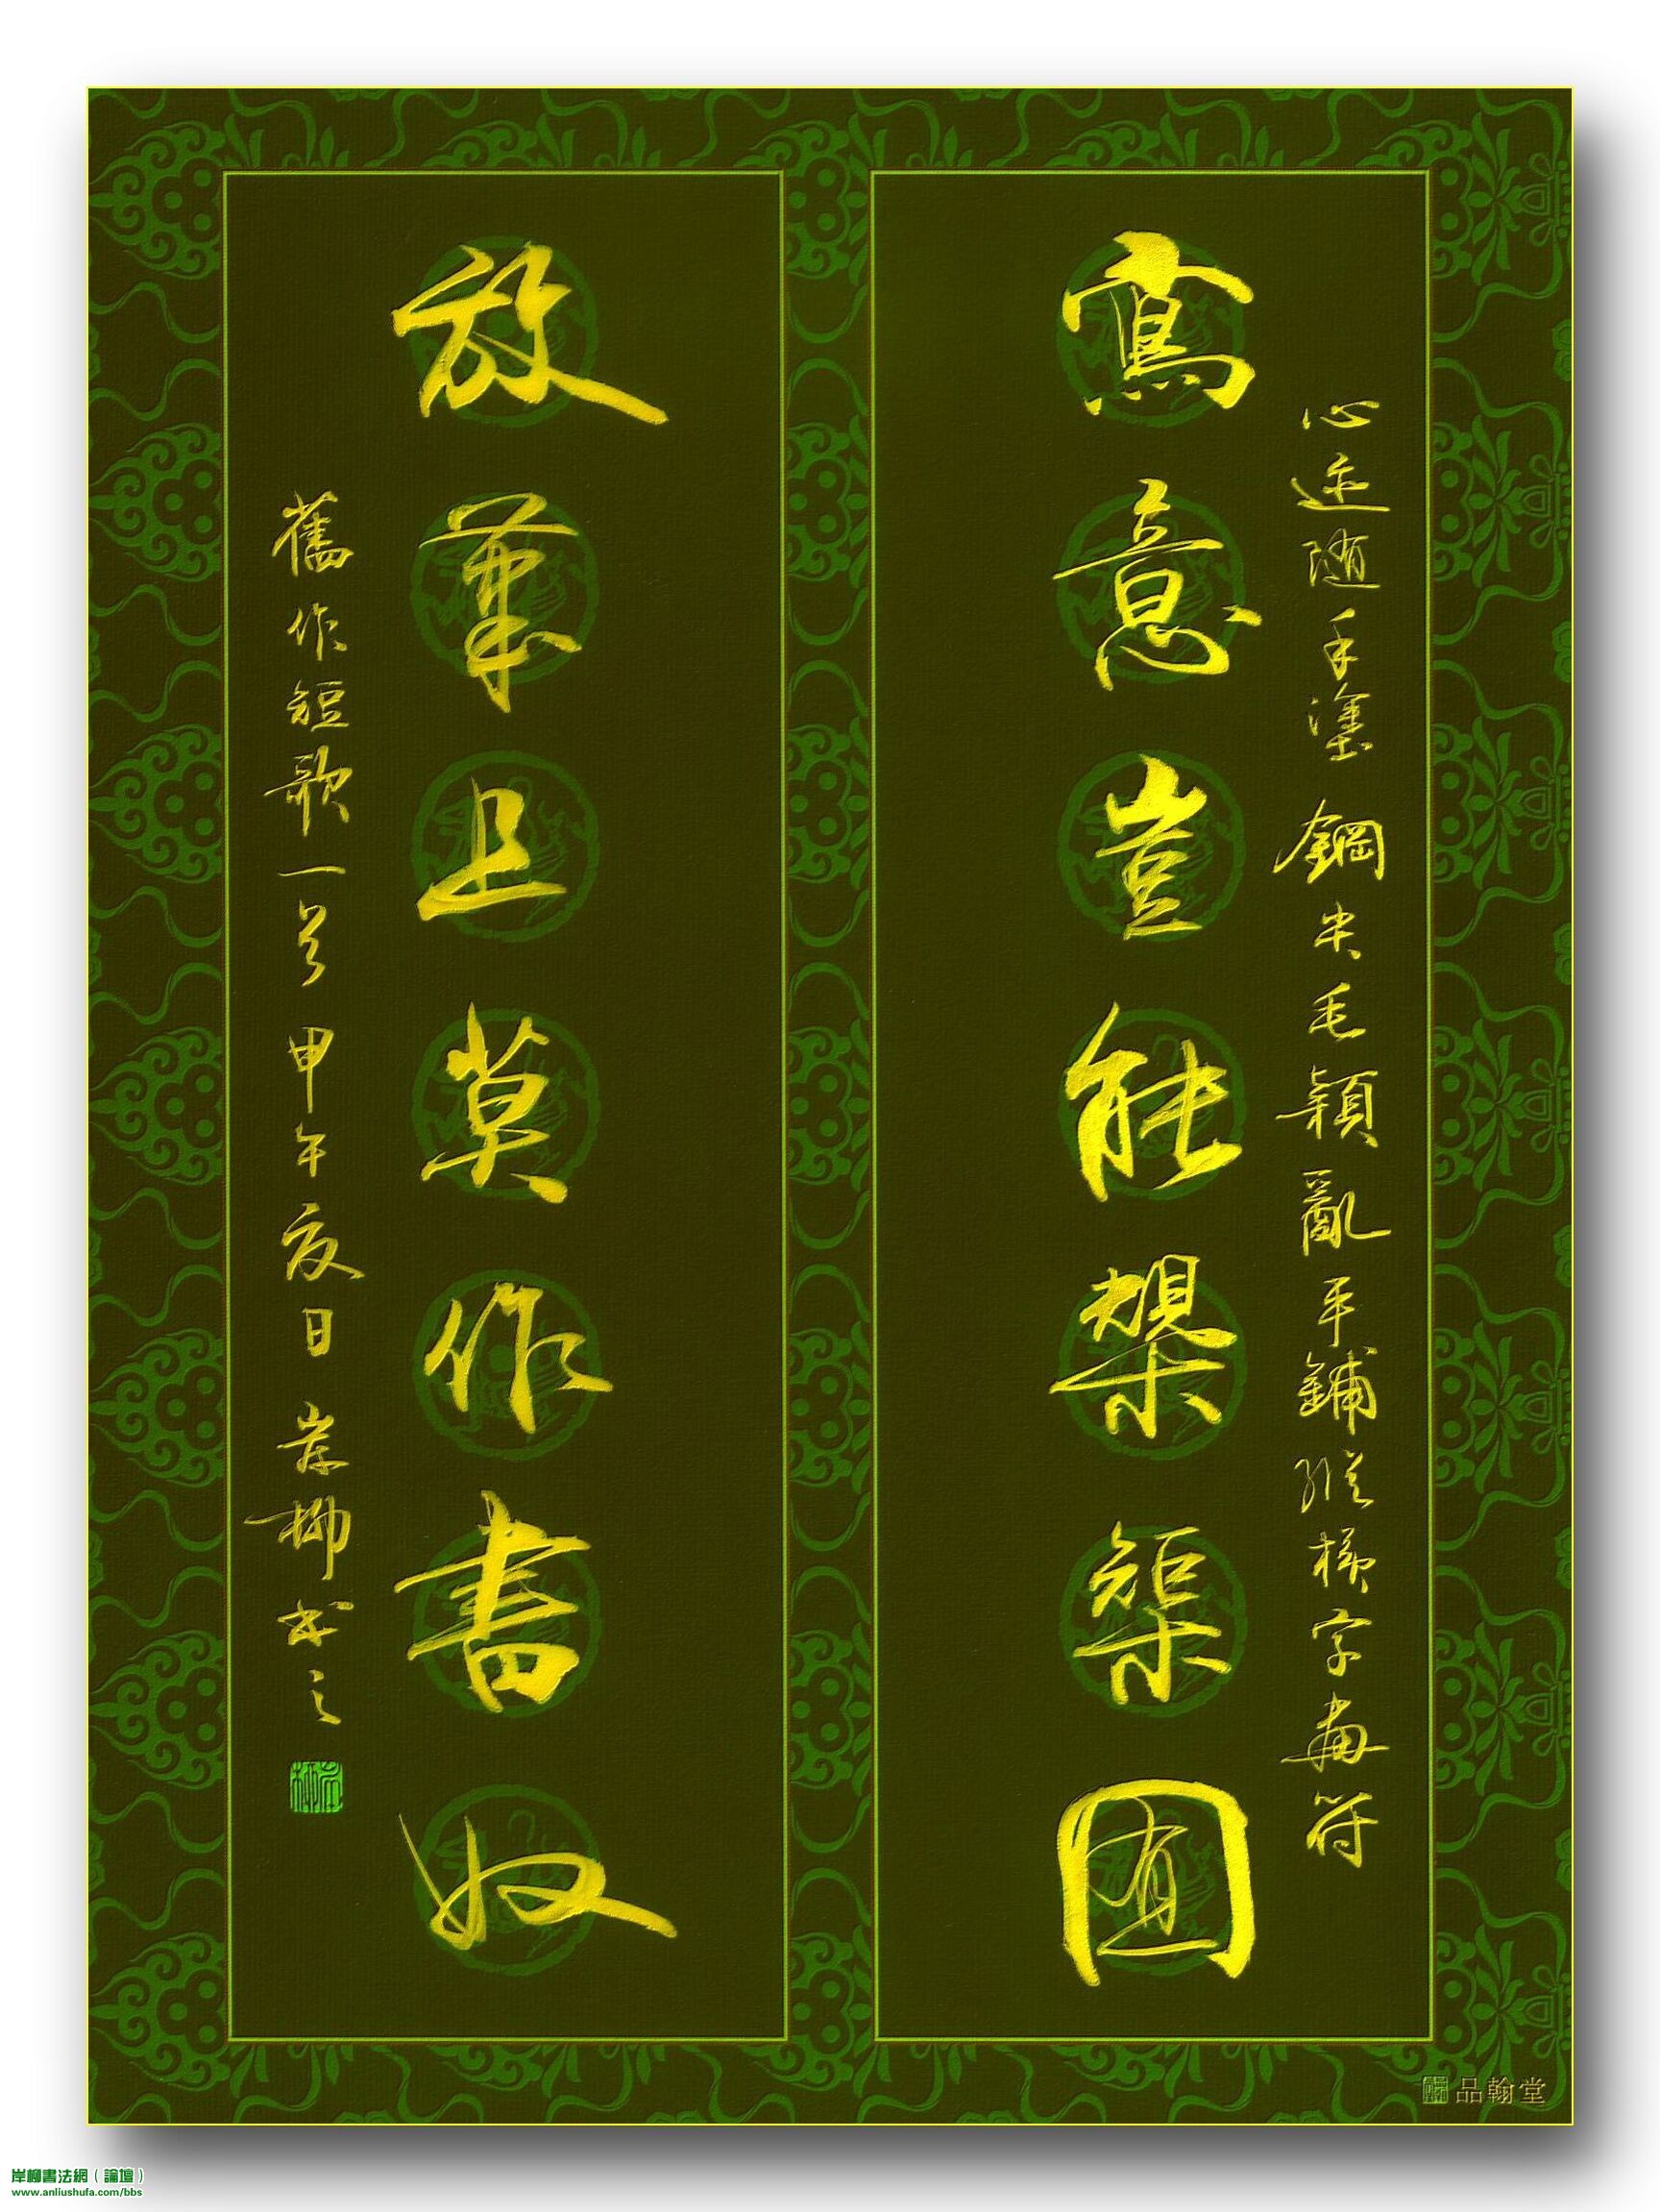 心迹隨手塗鋼尖毛穎亂平鋪縱橫字畫符
寫意豈能槼榘囿
放筆且莫作書奴
舊作短歌一首甲午夏日岸柳書之
岸柳
品翰堂
岸柳書法網（論壇）
www.anliushufa.com/bbs